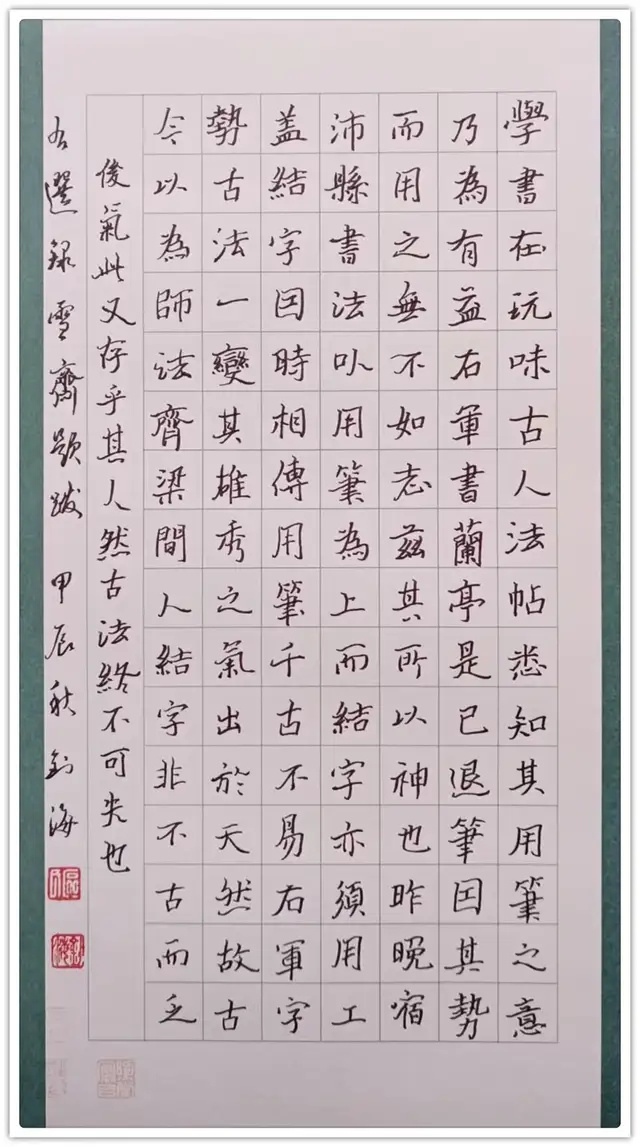 學書在玩味古人法帖悉知其用筆之意
乃為有益右軍書蘭亭是已退筆因其勢
而用之無不如志茲其所以神也昨晚宿
沛縣書法以用筆為上而結字亦須用工
盖結字因時相傳用筆千古不易右軍字
勢古法一變其雄秀之氣出於天然故古
今以為師法齊梁間人結字非不古而乏
俊氣此又存乎其人然古法終不可失也
右選錄雪齋題跋 甲辰秋 劉海